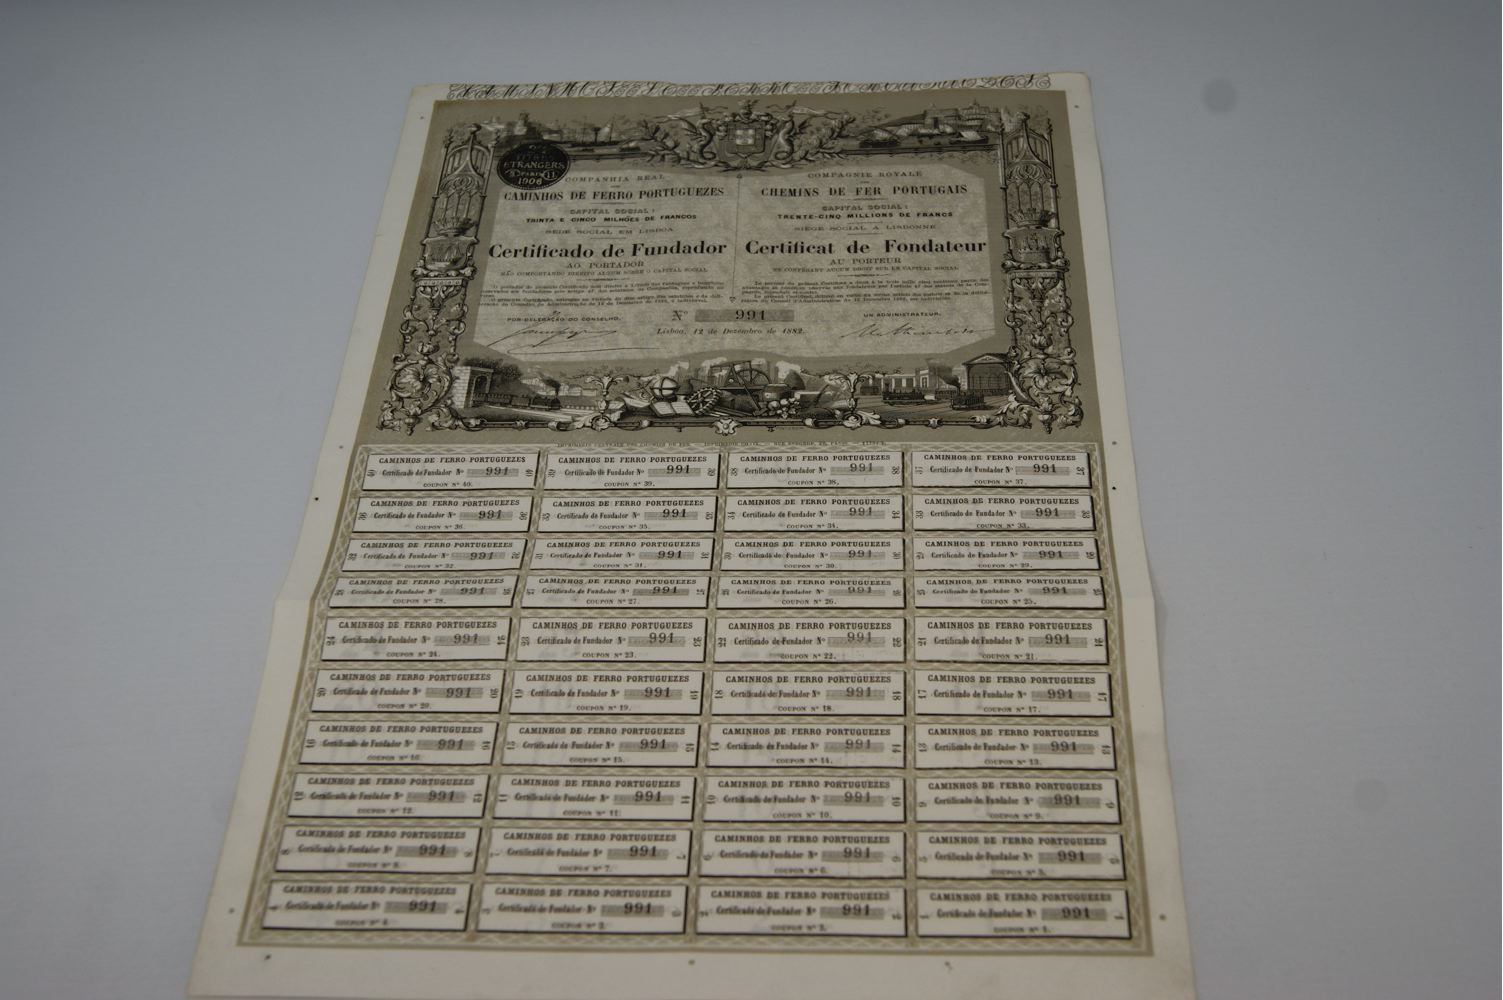 ETRANGERS
PARIS
1906
COMPANHIA REAL
CAMINHOS DE FERRO PORTUGUEZES
CAPITAL SOCIAL:
TRINTA E CINCO MILHÕES DE FRANCOS
SEDE SOCIAL EM LISBOA
Certificado de Fundador
AO PORTADOR
NÃO COMPORTANDO DIREITO ALGUM SOBRE O CAPITAL SOCIAL
POR DELEGAÇÃO DO CONSELHO,
COMPAGNIE ROYALE
CHEMINS DE FER PORTUGAIS
CAPITAL SOCIAL:
TRENTE-CINQ MILLIONS DE FRANCS
SIEGE SOCIAL A LISBONNE
Certificat de Fondateur
AU PORTEUR
NE CONFÉRANT AUCUN DROIT SUR LE CAPITAL SOCIAL
UN ADMINISTRATEUR,
Nº 991
Lisboa, 12 de Dezembro de 1882.
CAMINHOS DE FERRO PORTUGUEZES
40 Certificado de Fundador Nº 991 40
COUPON Nº 40.
CAMINHOS DE FERRO PORTUGUEZES
39 Certificado de Fundador Nº 991 39
COUPON Nº 39.
CAMINHOS DE FERRO PORTUGUEZES
38 Certificado de Fundador Nº 991 38
COUPON Nº 38.
CAMINHOS DE FERRO PORTUGUEZES
37 Certificado de Fundador Nº 991 37
COUPON Nº 37.
CAMINHOS DE FERRO PORTUGUEZES
36 Certificado de Fundador Nº 991 36
COUPON Nº 36.
CAMINHOS DE FERRO PORTUGUEZES
35 Certificado de Fundador Nº 991 35
COUPON Nº 35.
CAMINHOS DE FERRO PORTUGUEZES
34 Certificado de Fundador Nº 991 34
COUPON Nº 34.
CAMINHOS DE FERRO PORTUGUEZES
33 Certificado de Fundador Nº 991 33
COUPON Nº 33.
CAMINHOS DE FERRO PORTUGUEZES
32 Certificado de Fundador Nº 991 32
COUPON Nº 32.
CAMINHOS DE FERRO PORTUGUEZES
31 Certificado de Fundador Nº 991 31
COUPON Nº 31.
CAMINHOS DE FERRO PORTUGUEZES
30 Certificado de Fundador Nº 991 30
COUPON Nº 30.
CAMINHOS DE FERRO PORTUGUEZES
29 Certificado de Fundador Nº 991 29
COUPON Nº 29.
CAMINHOS DE FERRO PORTUGUEZES
28 Certificado de Fundador Nº 991 28
COUPON Nº 28.
CAMINHOS DE FERRO PORTUGUEZES
27 Certificado de Fundador Nº 991 27
COUPON Nº 27.
CAMINHOS DE FERRO PORTUGUEZES
26 Certificado de Fundador Nº 991 26
COUPON Nº 26.
CAMINHOS DE FERRO PORTUGUEZES
25 Certificado de Fundador Nº 991 25
COUPON Nº 25.
CAMINHOS DE FERRO PORTUGUEZES
24 Certificado de Fundador Nº 991 24
COUPON Nº 24.
CAMINHOS DE FERRO PORTUGUEZES
23 Certificado de Fundador Nº 991 23
COUPON Nº 23.
CAMINHOS DE FERRO PORTUGUEZES
22 Certificado de Fundador Nº 991 22
COUPON Nº 22.
CAMINHOS DE FERRO PORTUGUEZES
21 Certificado de Fundador Nº 991 21
COUPON Nº 21.
CAMINHOS DE FERRO PORTUGUEZES
20 Certificado de Fundador Nº 991 20
COUPON Nº 20.
CAMINHOS DE FERRO PORTUGUEZES
19 Certificado de Fundador Nº 991 19
COUPON Nº 19.
CAMINHOS DE FERRO PORTUGUEZES
18 Certificado de Fundador Nº 991 18
COUPON Nº 18.
CAMINHOS DE FERRO PORTUGUEZES
17 Certificado de Fundador Nº 991 17
COUPON Nº 17.
CAMINHOS DE FERRO PORTUGUEZES
16 Certificado de Fundador Nº 991 16
COUPON Nº 16.
CAMINHOS DE FERRO PORTUGUEZES
15 Certificado de Fundador Nº 991 15
COUPON Nº 15.
CAMINHOS DE FERRO PORTUGUEZES
14 Certificado de Fundador Nº 991 14
COUPON Nº 14.
CAMINHOS DE FERRO PORTUGUEZES
13 Certificado de Fundador Nº 991 13
COUPON Nº 13.
CAMINHOS DE FERRO PORTUGUEZES
12 Certificado de Fundador Nº 991 12
COUPON Nº 12.
CAMINHOS DE FERRO PORTUGUEZES
11 Certificado de Fundador Nº 991 11
COUPON Nº 11.
CAMINHOS DE FERRO PORTUGUEZES
10 Certificado de Fundador Nº 991 10
COUPON Nº 10.
CAMINHOS DE FERRO PORTUGUEZES
9 Certificado de Fundador Nº 991 9
COUPON Nº 9.
CAMINHOS DE FERRO PORTUGUEZES
8 Certificado de Fundador Nº 991 8
COUPON Nº 8.
CAMINHOS DE FERRO PORTUGUEZES
7 Certificado de Fundador Nº 991 7
COUPON Nº 7.
CAMINHOS DE FERRO PORTUGUEZES
6 Certificado de Fundador Nº 991 6
COUPON Nº 6.
CAMINHOS DE FERRO PORTUGUEZES
5 Certificado de Fundador Nº 991 5
COUPON Nº 5.
CAMINHOS DE FERRO PORTUGUEZES
4 Certificado de Fundador Nº 991 4
COUPON Nº 4.
CAMINHOS DE FERRO PORTUGUEZES
3 Certificado de Fundador Nº 991 3
COUPON Nº 3.
CAMINHOS DE FERRO PORTUGUEZES
2 Certificado de Fundador Nº 991 2
COUPON Nº 2.
CAMINHOS DE FERRO PORTUGUEZES
1 Certificado de Fundador Nº 991 1
COUPON Nº 1.